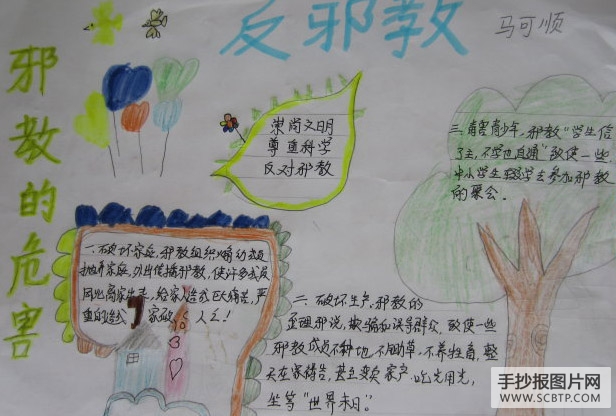 反邪教
马可顺
邪教的危害
崇尚文明
尊重科学
反对邪教
一、破坏家庭。邪教组织煽动成员
抛弃家庭,外出传播邪教,使许多成员
离家出走,给家人造成巨大痛苦,严
重的造成家破人亡!
二、破坏生产。邪教的
歪理邪说,欺骗和误导群众,致使一些
邪教成员不种地、不锄草、不养牲畜,整
天在家祷告,甚至变卖家产,吃光用光,
坐等“世界末日”。
三、有害青少年。邪教“学生信
了主,不学也直通”致使一些
中小学生辍学去参加邪教
的聚会。
手抄报图片网
WWW.SCBTP.COM